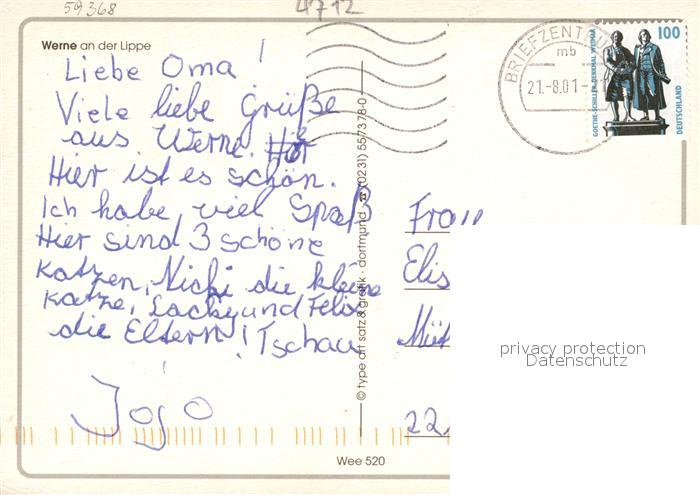 59368
4712
Werne an der Lippe
Liebe Oma !
Viele liebe Grüße
aus Werne.
Hier ist es schön.
Ich habe viel Spaß
Hier sind 3 schöne
Katzen, Nicki die kleine
Katze, Lacky und Felix
die Eltern! Tschau
Jojo
© type art satz & grafik · dortmund · ☎ (0231) 557378-0
Wee 520
BRIEFZENTRUM
mb
21.-8.01.-
GOETHE-SCHILLER-DENKMAL WEIMAR
100
DEUTSCHLAND
Frau
Elis
Mü
22
privacy protection
Datenschutz